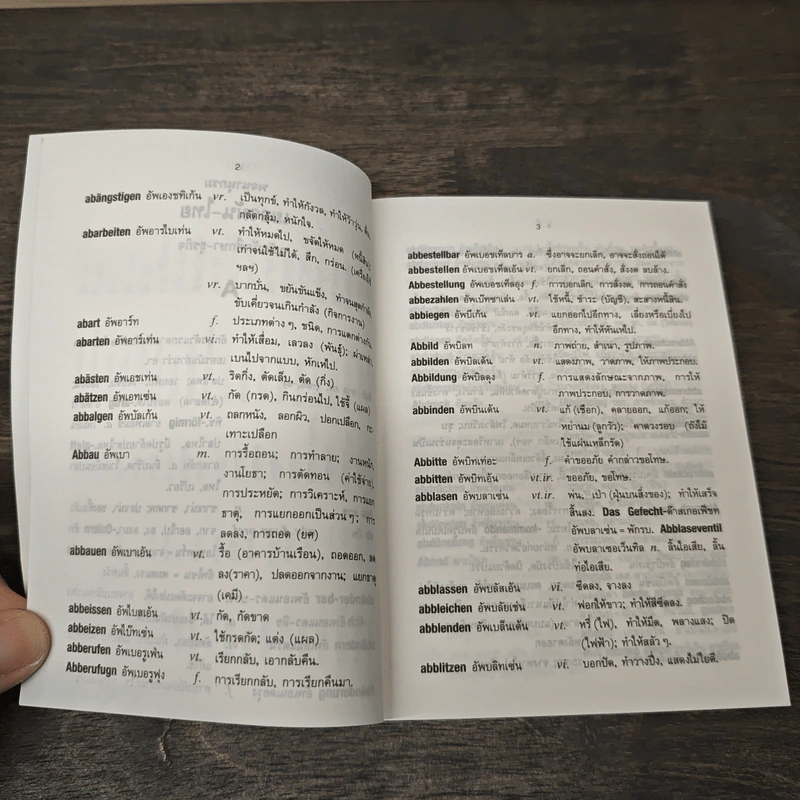 2
abängstigen อัพเองชทิเก้น vr. เป็นทุกข์, ทำให้กังวล, ทำให้ว้าวุ่น,
กลัดกลุ้ม, หนักใจ.
abarbeiten อัพอารไบเท่น vt. ทำให้หมดไป, ขจัดให้หมด (หนี้สิน)
เก่าจนใช้ไม่ได้, สึก, กร่อน.
ฯลฯ)
vr. บากบั่น, ขยันขันแข็ง,
ขับเคี่ยวจนเกินกำลัง (กิจการงาน)
abart อัพอาร์ท f. ประเภทต่าง ๆ, ชนิด,
abarten อัพอาร์เท่น vi. ทำให้เสื่อม, เลวลง (พันธุ์);
เบนไปจากแบบ, หักเหไป.
abästen อัพเอซเท่น vt. ริดกิ่ง, ตัดเล็บ, ตัด (กิ่ง)
abätzen อัพเอทเซ่น vt. กัด (กรด), กินกร่อนไป, ใช้จี้ (แผล)
abbalgen อัพบัลเก้น vt. ถลกหนัง, ลอกผิว, ปอกเปลือก, กะ
เทาะเปลือก
Abbau อัพเบา m. การรื้อถอน; การทำลาย; งานหนัก,
งานโยธา; การตัดทอน (ค่าใช้จ่าย),
การประหยัด; การวิเคราะห์, การแยก
ธาตุ, การแยกออกเป็นส่วน ๆ; การ
ลดลง, การถอด (ยศ)
abbauen อัพเบาเอ้น vt. รื้อ (อาคารบ้านเรือน), ถอดออก, ลด
ลง(ราคา), ปลดออกจากงาน; แยกธาตุ
(เคมี)
abbeissen อัพไบสเอ้น vt. กัด, กัดขาด
abbeizen อัพไบ๊ทเซ่น vt. ใช้กรดกัด; แต่ง (แผล)
abberufen อัพเบอรูเฟ่น vt. เรียกกลับ, เอากลับคืน.
Abberufugn อัพเบอรูฟุ่ง f. การเรียกกลับ, การเรียกคืนมา.
3
abbestellbar อัพเบอชเท็ลบาร a. ซึ่งอาจจะยกเลิก, อาจจะสั่งถอนได้
abbestellen อัพเบอชเท็ลเอ้น vt. ยกเลิก, ถอนคำสั่ง, สั่งงด ลบล้าง.
Abbestellung อัพเบอชเท็ลอุง f. การบอกเลิก, การสั่งงด, การถอนคำสั่ง
abbezahlen อัพเบ๊ทซาเล่น vt. ใช้หนี้, ชำระ (บัญชี), สะสางหนี้สิน.
abbiegen อัพบีเก้น vt. แยกออกไปอีกทาง, เลี่ยงหรือเบี่ยงไป
อีกทาง, ทำให้หันเหไป.
Abbild อัพบิลท n. ภาพถ่าย, สำเนา, รูปภาพ.
abbilden อัพบิลเด้น vt. แสดงภาพ, วาดภาพ, ให้ภาพประกอบ.
Abbildung อัพบิลดุง f. การแสดงลักษณะจากภาพ, การให้
ภาพประกอบ, การวาดภาพ.
abbinden อัพบินเด้น vt. แก้ (เชือก), คลายออก, แก้ออก; ให้
หย่านม (ลูกวัว); คาดวงรอบ (ถังไม้
ใช้แผ่นเหล็กรัด)
Abbitte อัพบิทเท่อะ f. คำขออภัย คำกล่าวขอโทษ.
abbitten อัพบิทเอ้น vt.ir. ขออภัย, ขอโทษ.
abblasen อัพบลาเซ่น vt.ir. พ่น, เป่า (ฝุ่นบนสิ่งของ); ทำให้เสร็จ
สิ้นลง. Das Gefecht-ด๊าสเกอเฟ็ชท
อัพบลาเซ่น = พักรบ. Abblaseventil
อัพบลาเซอเว็นทิล n. ลิ้นไอเสีย, ลิ้น
ท่อไอเสีย.
abblassen อัพบลัสเอ้น vi. ซีดลง, จางลง
abbleichen อัพบลัยเช่น vt. ฟอกให้ขาว; ทำให้สีซีดลง.
abblenden อัพเบล็นเด้น vt. หรี่ (ไฟ), ทำให้มืด, พลางแสง; ปิด
(ไฟฟ้า); ทำให้สลัว ๆ.
abblitzen อัพบลิทเซ่น vi. บอกปัด, ทำวางปึ่ง, แสดงไม่ไยดี.